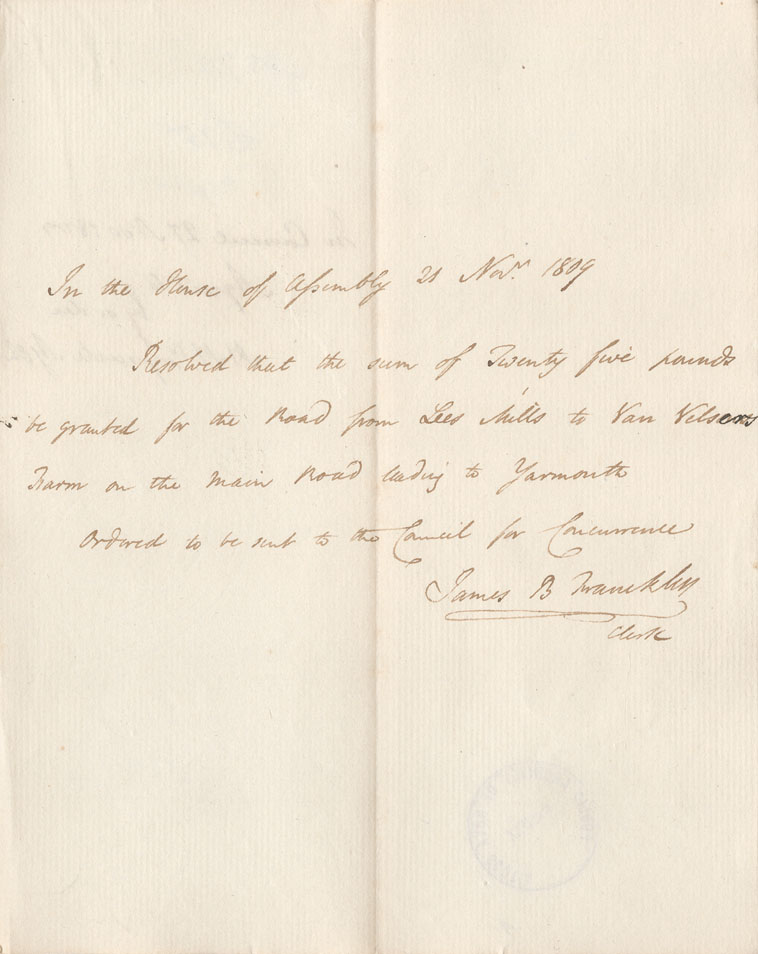 In the House of Assembly 21 Novr. 1809
Resolved that the sum of Twenty five pounds
be granted for the Road from Lees Mills to Van Nelsens
Farm on the Main Road leading to Yarmouth
Ordered to be sent to the Council for Concurrence
James B Franckling
Clerk